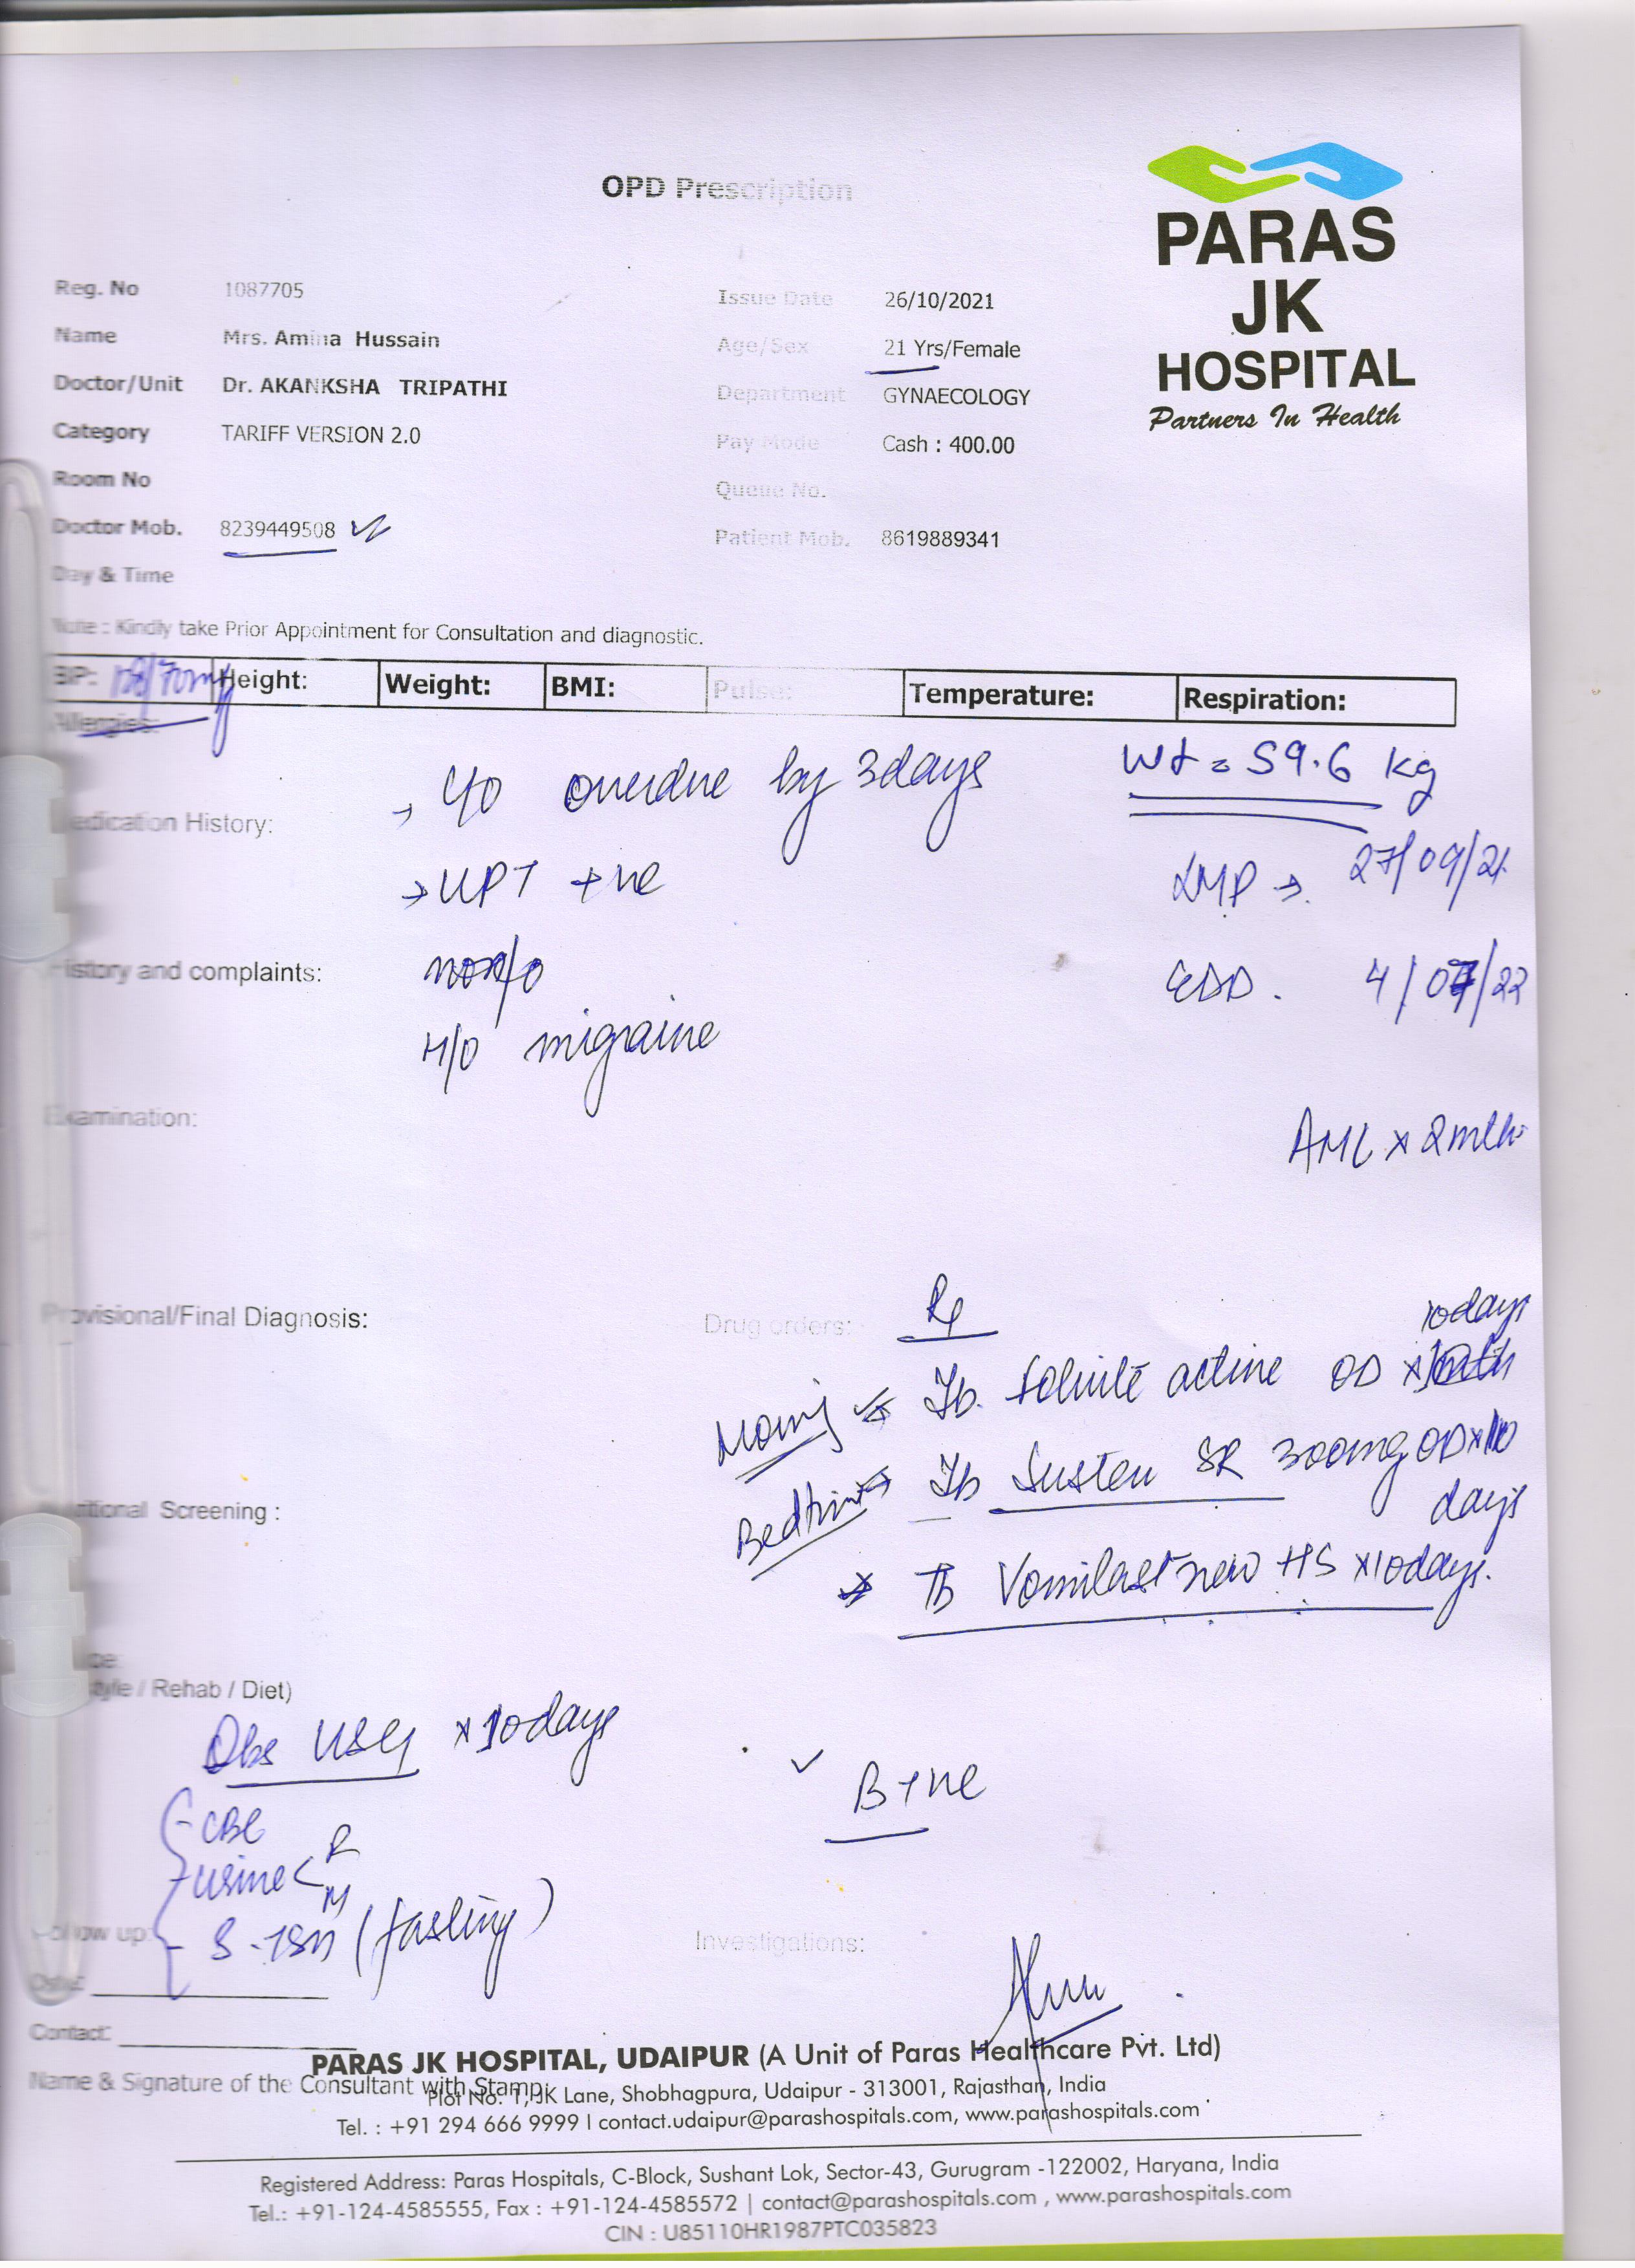 OPD Prescription
PARAS
JK
HOSPITAL
Partners In Health
Reg. No 1087705
Issue Date 26/10/2021
Name Mrs. Amina Hussain
Age/Sex 21 Yrs/Female
Doctor/Unit Dr. AKANKSHA TRIPATHI
Department GYNAECOLOGY
Category TARIFF VERSION 2.0
Pay Mode Cash : 400.00
Room No
Queue No.
Doctor Mob. 8239449508
Patient Mob. 8619889341
Day & Time
Note : Kindly take Prior Appointment for Consultation and diagnostic.
BP: Height: Weight: BMI: Pulse: Temperature: Respiration:
Allergies:
C/O overdue by 3days
Wt = 59.6 kg
Medication History:
UPT +ve
LMP → 27/09/21
History and complaints:
EDD. 4/07/22
H/O migraine
Examination:
x 2mth
Provisional/Final Diagnosis:
Drug orders: Rx
10days
Morning Tb. folvite active OD x
Bedtime Tb Susten SR 300mg OD x 10
days
Nutritional Screening :
Tb Vomilast new HS x10days.
style / Rehab / Diet)
Obs USG x10days
B +ve
CBC
urine < R
M
S. TSH (fasting)
Follow up:
Date:
Investigations:
Contact:
PARAS JK HOSPITAL, UDAIPUR (A Unit of Paras Healthcare Pvt. Ltd)
Name & Signature of the Consultant with Stamp:
Plot No. 1, JK Lane, Shobhagpura, Udaipur - 313001, Rajasthan, India
Tel. : +91 294 666 9999 | contact.udaipur@parashospitals.com, www.parashospitals.com
Registered Address: Paras Hospitals, C-Block, Sushant Lok, Sector-43, Gurugram -122002, Haryana, India
Tel.: +91-124-4585555, Fax : +91-124-4585572 | contact@parashospitals.com , www.parashospitals.com
CIN : U85110HR1987PTC035823